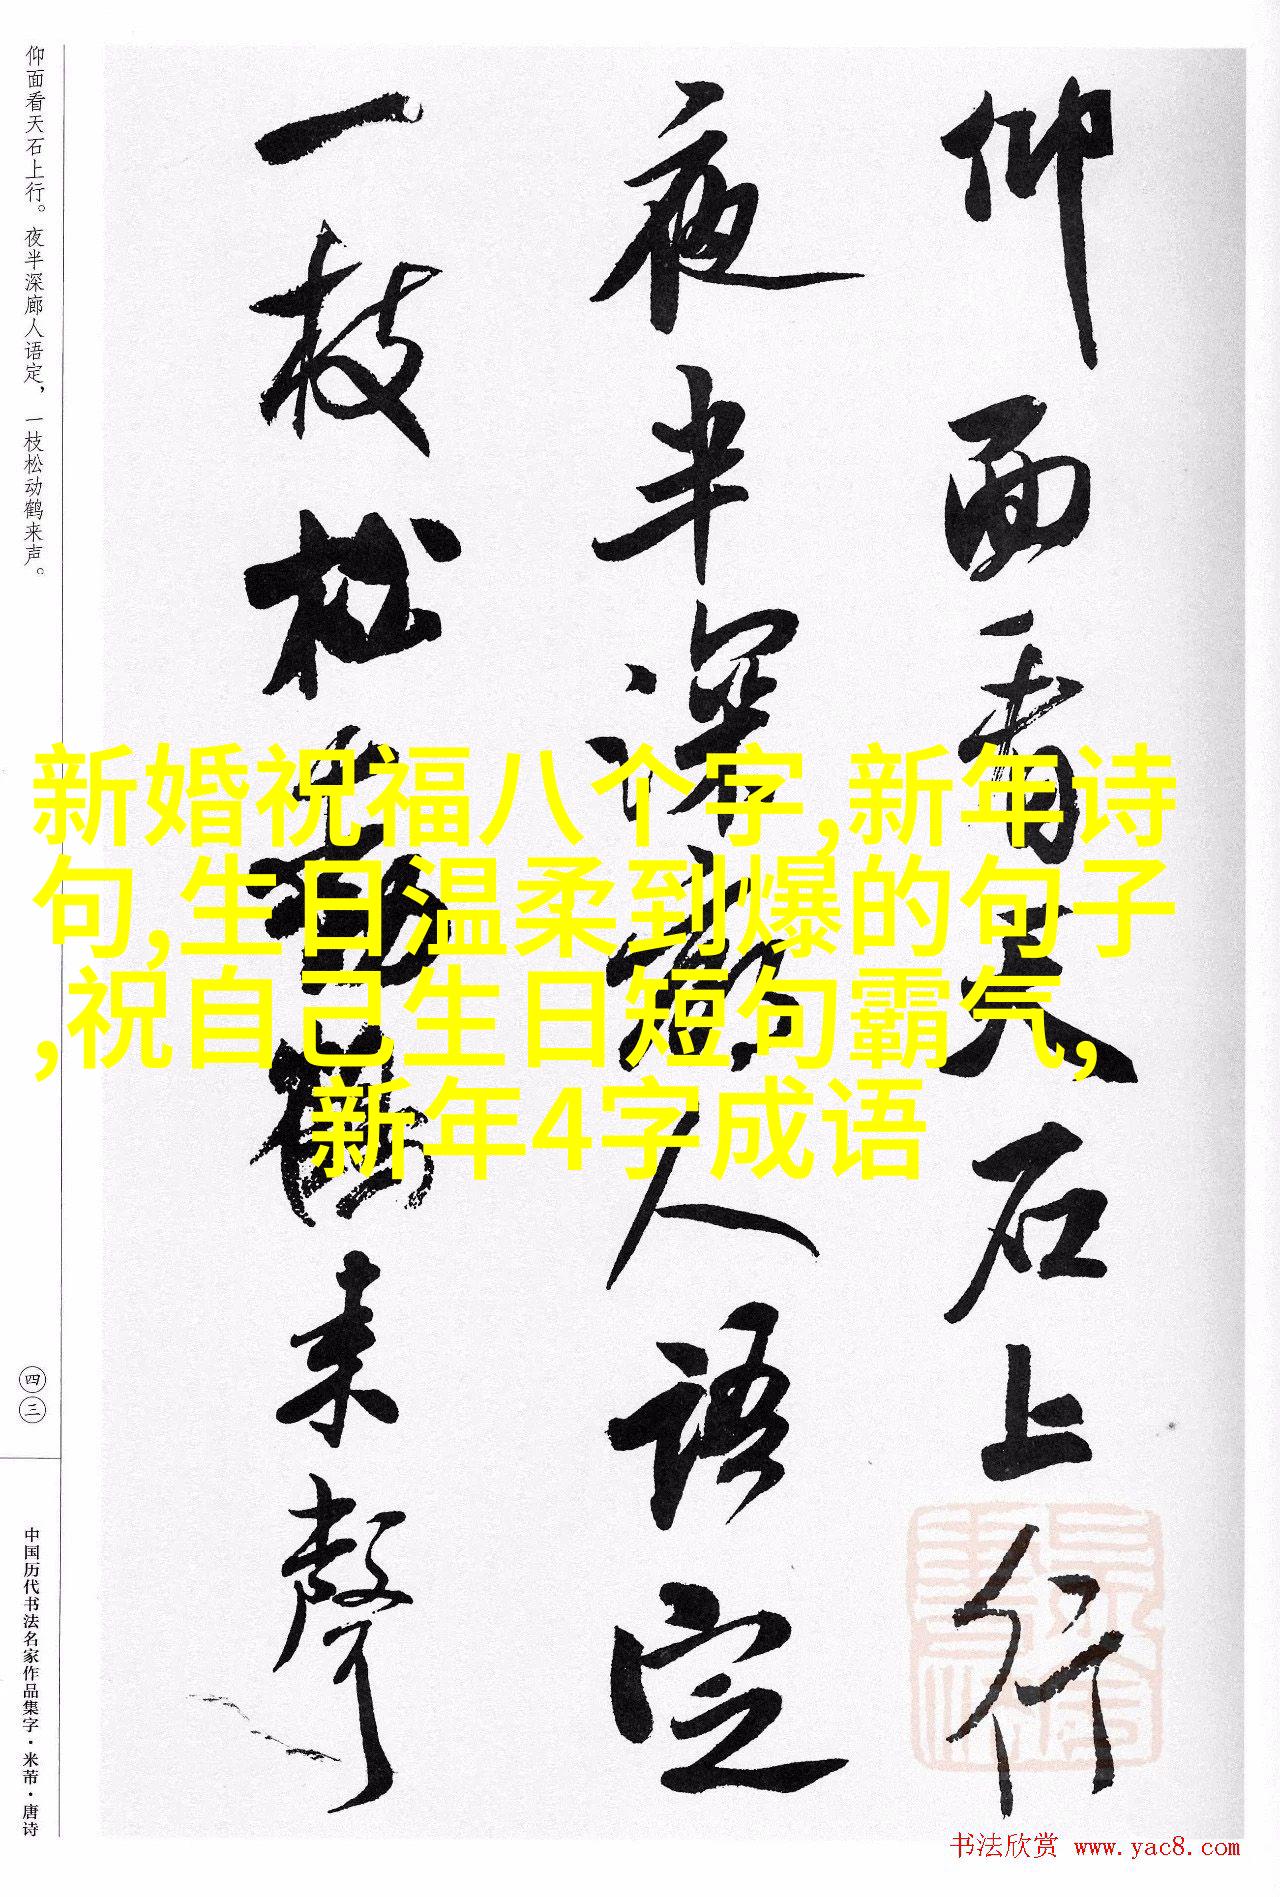 仰面看天石上行
夜半深廊人语定
一枝松动鹤来声
仰面看天石上行。夜半深廊人语定，一枝松动鹤来声。
四三
中国历代书法名家作品集字·米芾·唐诗
新婚祝福八个字,新年诗
句,生日温柔到爆的句子
,祝自己生日短句霸气,
新年4字成语
书法欣赏 www.yac8.com